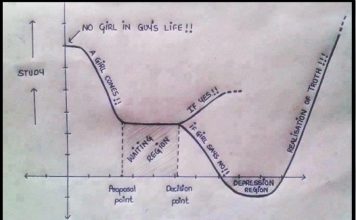 NO GIRL IN GUY'S LIFE!!
A GIRL COMES!!
STUDY
WAITING
REGION
IF YES!!
IF GIRL SAYS NO!!
DEPRESSION
REGION
REALISATION OF TRUTH!!!
Proposal
point
Decision
point